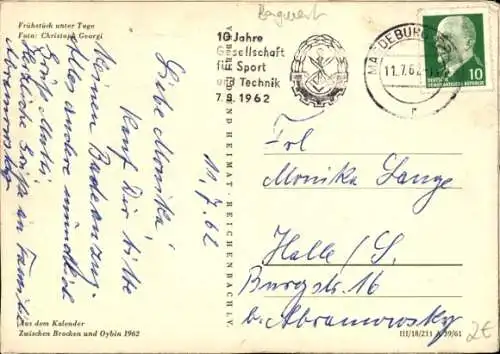 Frühstück unter Tage
Foto: Christoph Georgi
11.7.62
Liebe Monika!
Kauf Dir bitte
keinen Badeanzug.
Alles andere mündlich
Gruß Mutti,
Herzliche Grüße an Familie
Abramowsky
Aus dem Kalender
Zwischen Brocken und Oybin 1962
VERLAG BILD UND HEIMAT · REICHENBACH I. V.
Bergwerk
10 Jahre
Gesellschaft
für Sport
und Technik
7.8.1962
MAGDEBURG
11.7.62
r
DEUTSCHE
DEMOKRATISCHE REPUBLIK
10
Frl
Monika Lange
Halle / S.
Burgstr. 16
b. Abramowsky
III/18/211 A 39/61
2€